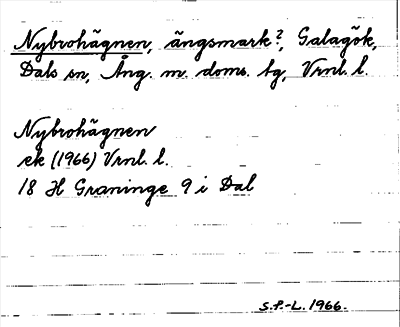 Nybrohägnen, ängsmark?, Galagök,
Dals sn, Ång. m. doms. tg, Vrnl. l.
Nybrohägnen
ek (1966) Vrnl. l.
18 H Graninge 9 i Dal
S.P.-L. 1966.